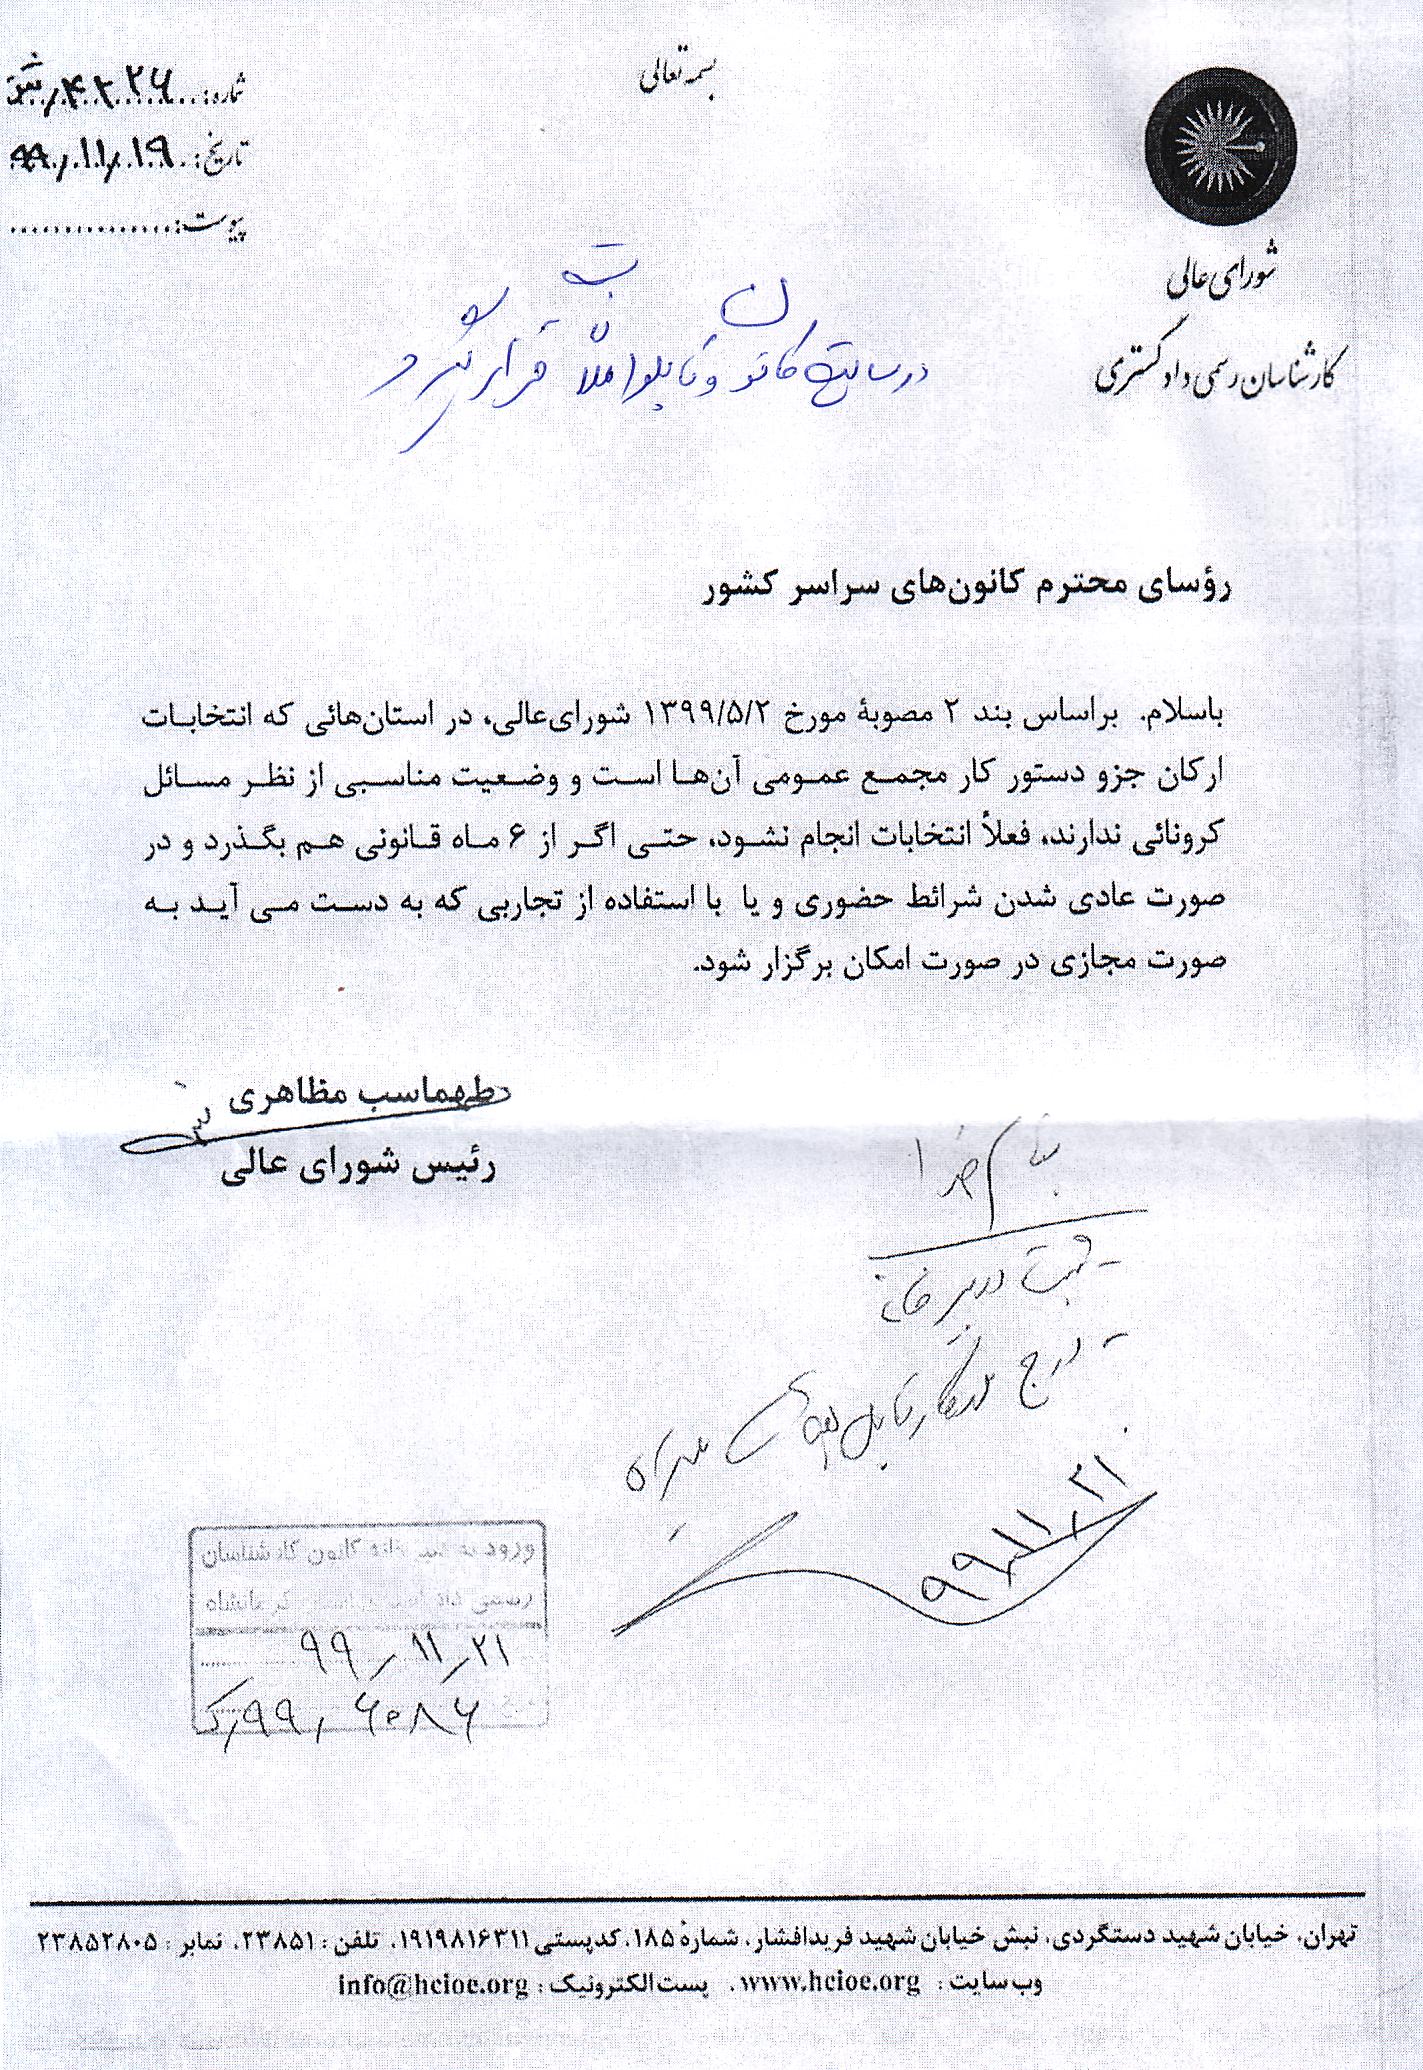 بسمه تعالی
شماره: ۴۲۲۶/ش
تاریخ: ۹۹/۱۱/۱۹
پیوست:
شورای عالی
کارشناسان رسمی دادگستری
در سایت کانون و تابلو اعلانات قرار گیرد
رؤسای محترم کانون‌های سراسر کشور
باسلام. براساس بند ۲ مصوبهٔ مورخ ۱۳۹۹/۵/۲ شورای‌عالی، در استان‌هائی که انتخابات
ارکان جزو دستور کار مجمع عمومی آن‌ها است و وضعیت مناسبی از نظر مسائل
کرونائی ندارند، فعلاً انتخابات انجام نشود، حتی اگر از ۶ ماه قانونی هم بگذرد و در
صورت عادی شدن شرائط حضوری و یا با استفاده از تجاربی که به دست می آید به
صورت مجازی در صورت امکان برگزار شود.
طهماسب مظاهری
رئیس شورای عالی
بنام خدا
- ثبت دبیرخانه
- درج
۹۹/۱۱/۲۱
ورود به دبیرخانه کانون کارشناسان
رسمی دادگستری استان کرمانشاه
۹۹/۱۱/۲۱
۹۹/۶۰۸۶/ک
تهران، خیابان شهید دستگردی، نبش خیابان شهید فریدافشار، شمارهٔ ۱۸۵، کدپستی ۱۹۱۹۸۱۶۳۱۱، تلفن : ۲۳۸۵۱، نمابر : ۲۳۸۵۲۸۰۵
وب سایت : www.hcioe.org ، پست‌الکترونیک : info@hcioe.org